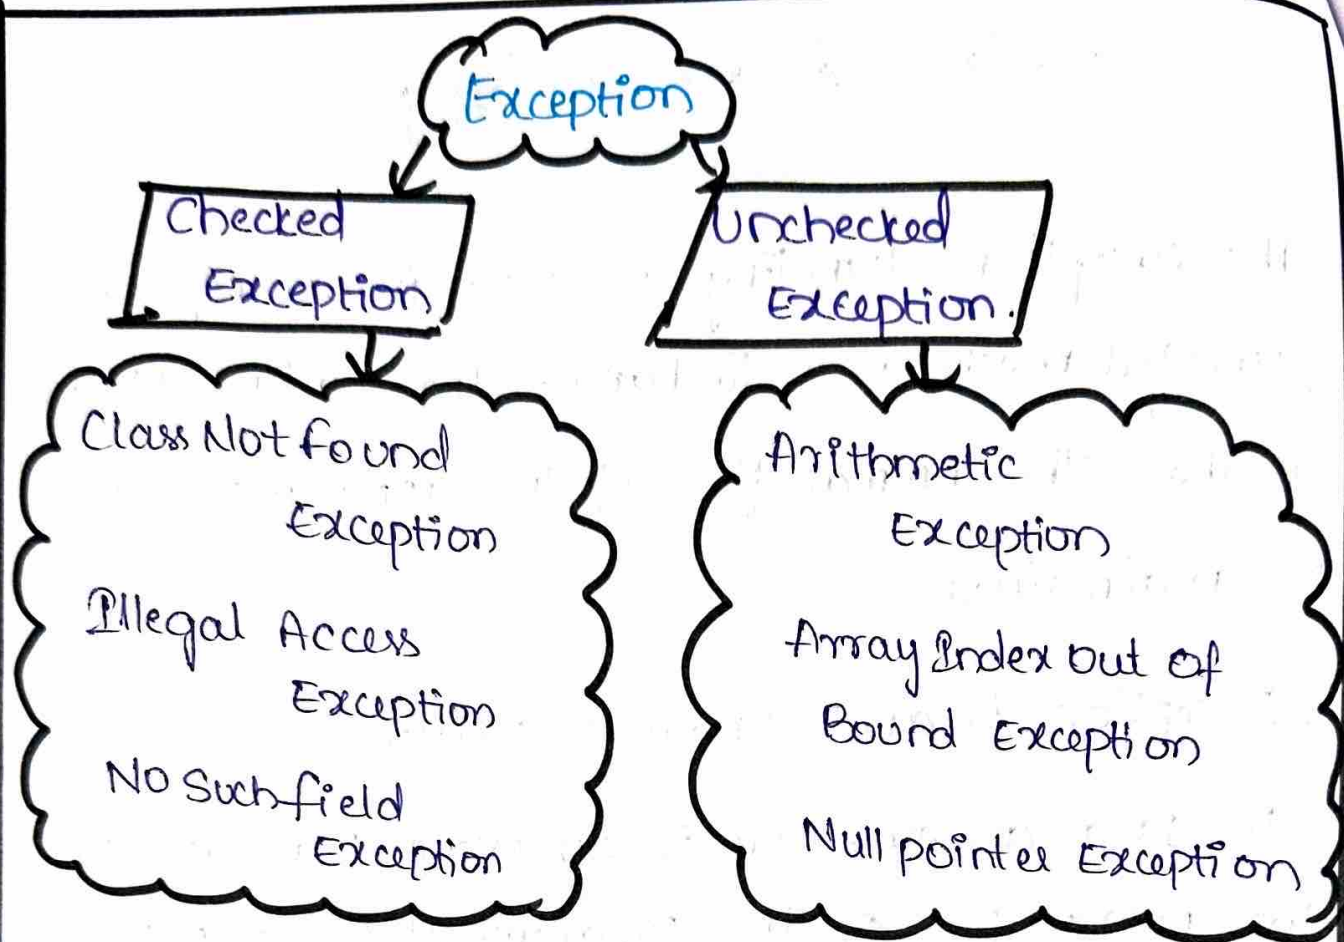 Exception
Checked
Exception
Unchecked
Exception.
Class Not found
Exception
Illegal Access
Exception
No Such field
Exception
Arithmetic
Exception
Array Index out of
Bound Exception
Null pointer Exception